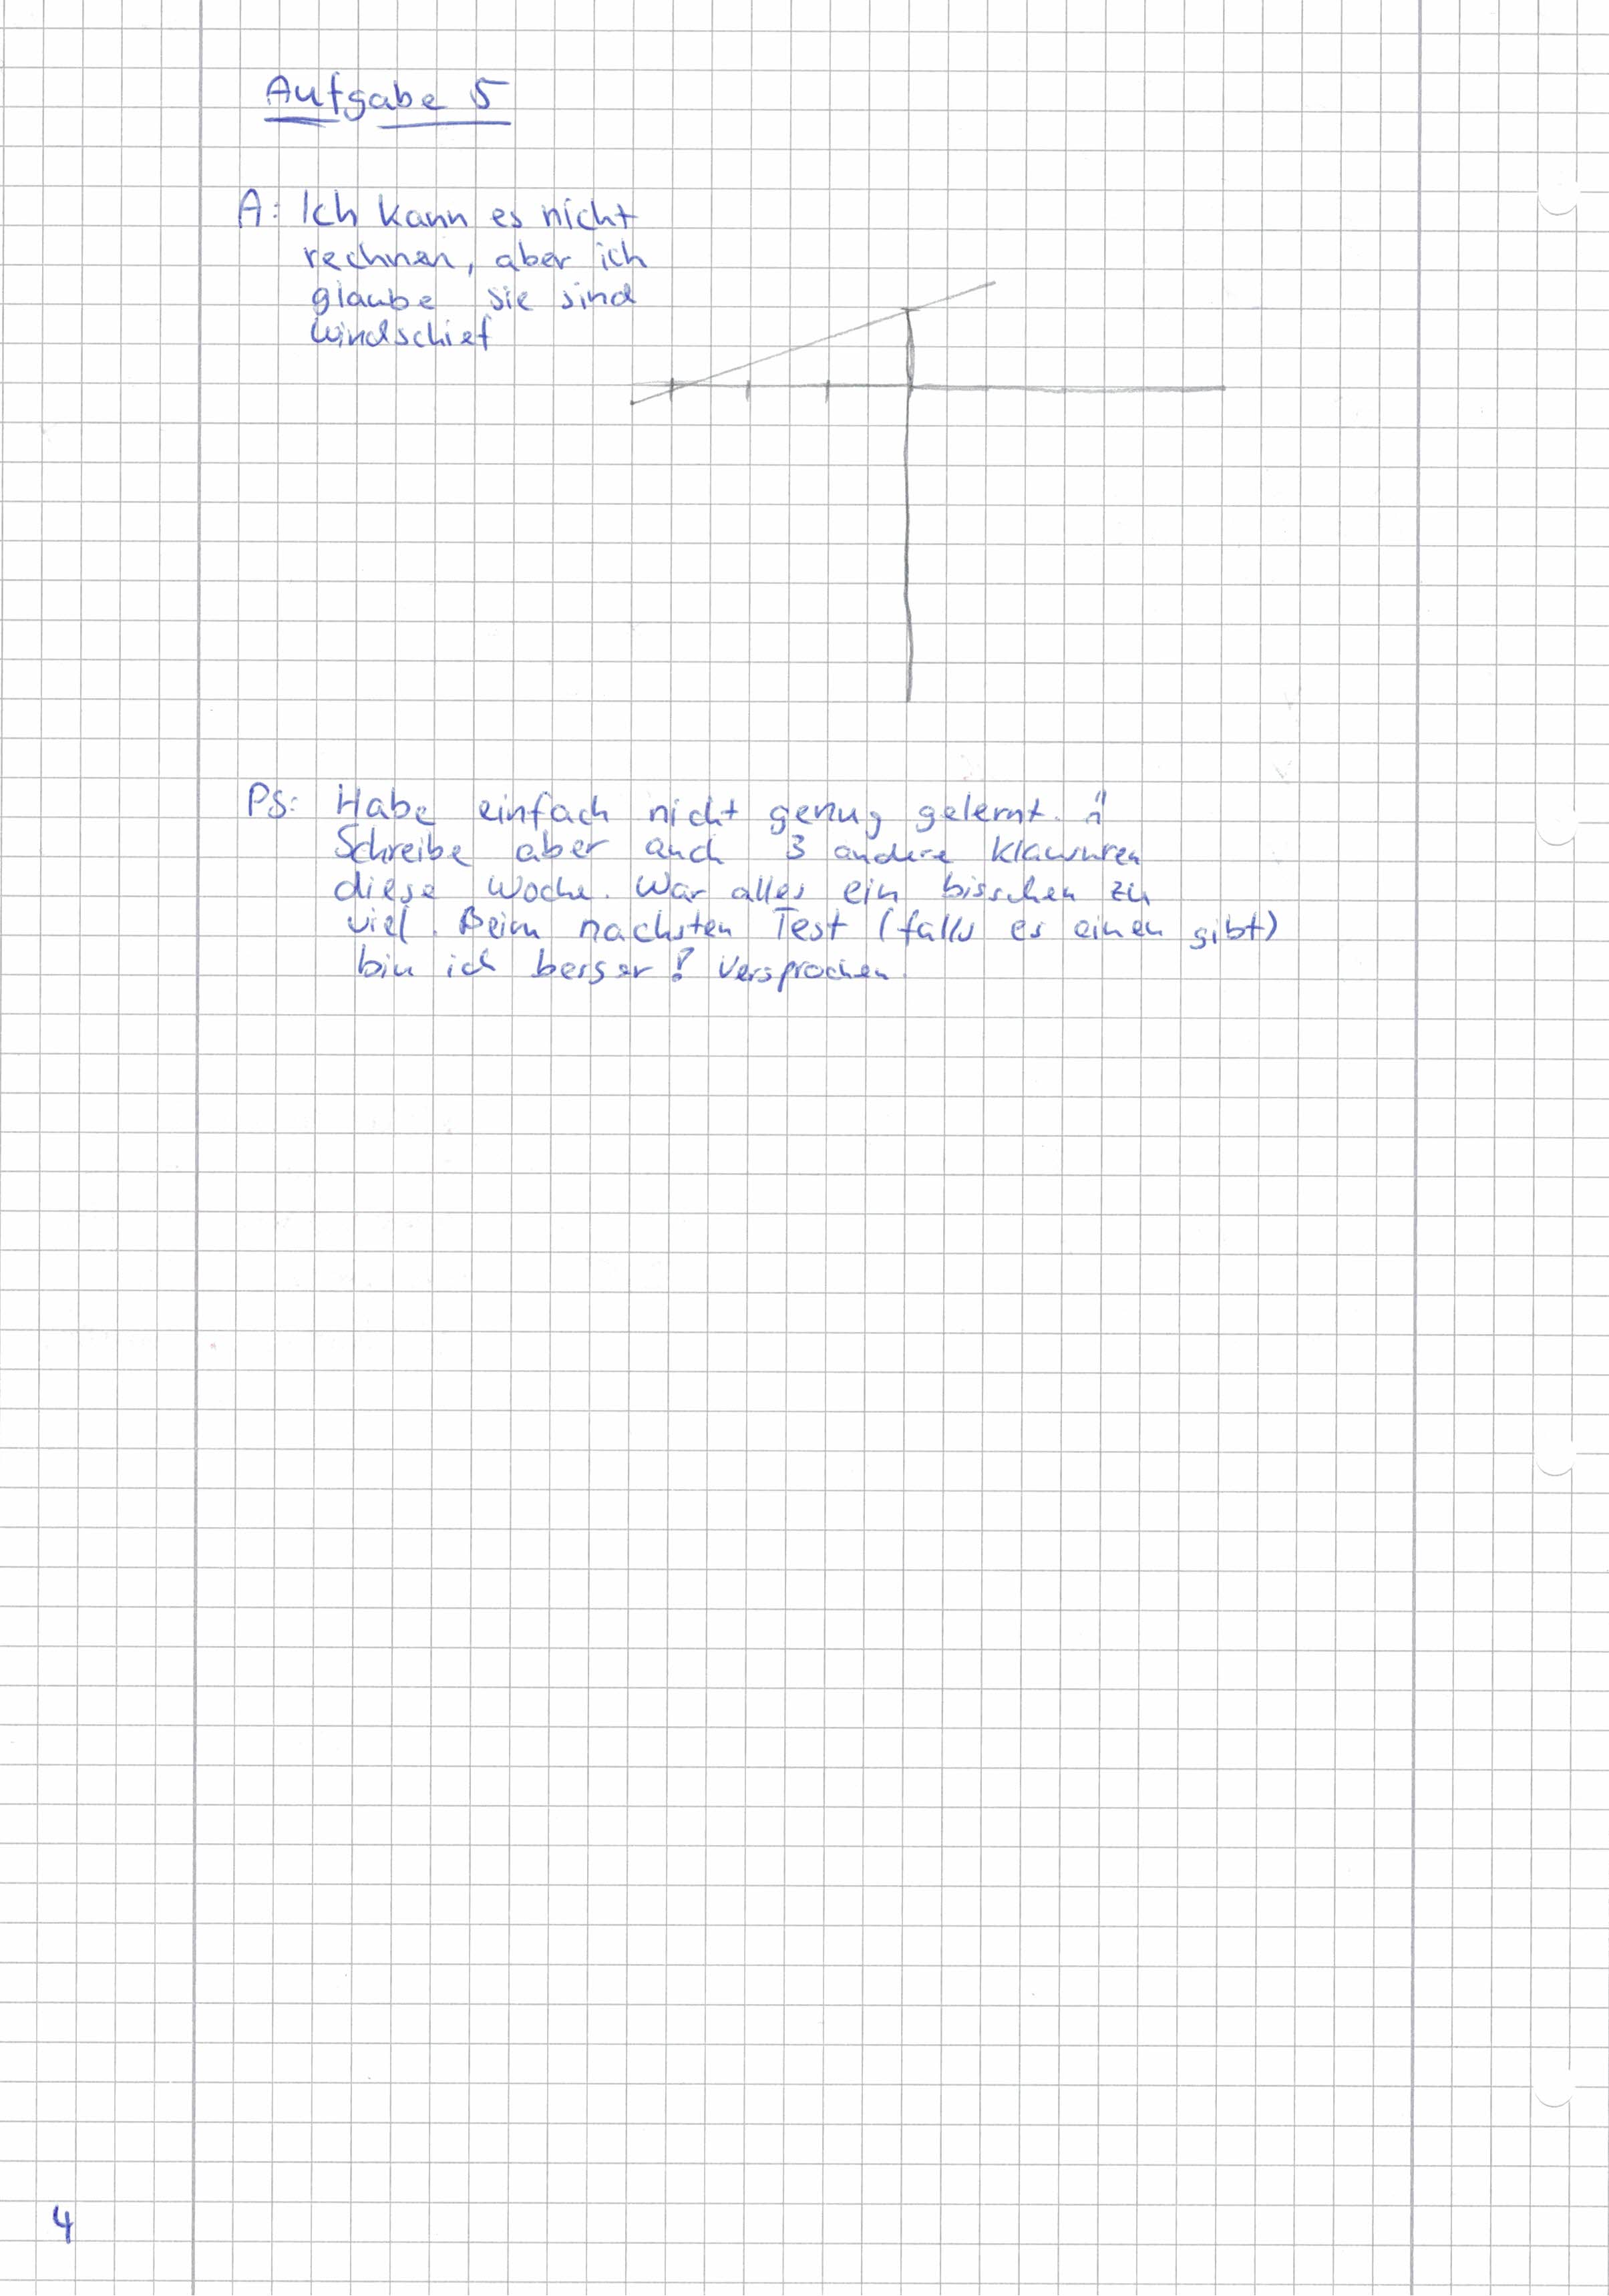 Aufgabe 5
A: Ich kann es nicht
rechnen, aber ich
glaube sie sind
windschief
PS: Habe einfach nicht genug gelernt.
Schreibe aber auch 3 andere Klausuren
diese Woche. War alles ein bisschen zu
viel. Beim nächsten Test (falls es einen gibt)
bin ich besser! Versprochen.
4